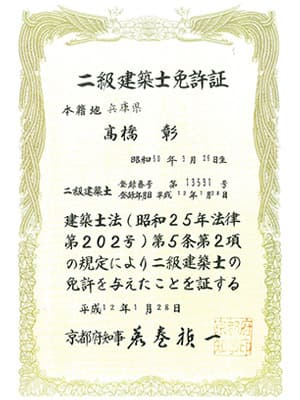 二級建築士免許証
本籍地 兵庫県
髙橋 彰
昭和50年3月26日生
二級建築士
登録番号 第13531号
登録年月日 平成12年1月28日
建築士法(昭和25年法律
第202号)第5条第2項
の規定により二級建築士の
免許を与えたことを証する
平成12年1月28日
京都府知事 荒巻禎一